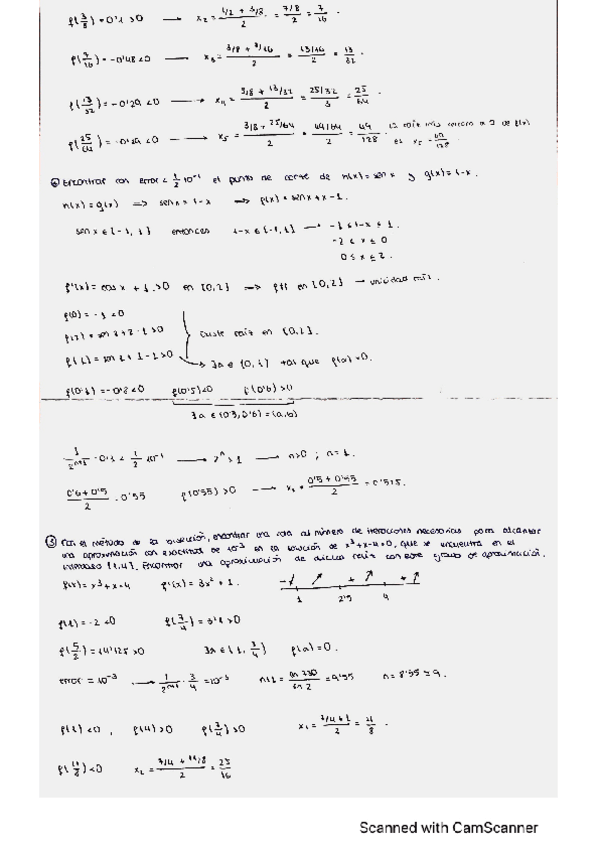 f(3/8) = 0'1 > 0 → x₂ = (1/2 + 3/8)/2 = (7/8)/2 = 7/16.
f(7/16) = -0'48 < 0 → x₃ = (3/8 + 7/16)/2 = (13/16)/2 = 13/32
f(13/32) = -0'29 < 0 → x₄ = (3/8 + 13/32)/2 = (25/32)/2 = 25/64
f(25/64) = -0'29 < 0 → x₅ = (3/8 + 25/64)/2 = (49/64)/2 = 49/128. La raíz más cercana a 0 de f(x) es x₅ = 49/128
④ Encontrar con error < 1/2 10⁻¹ el punto de corte de h(x) = sen x y g(x) = 1-x.
h(x) = g(x) ⟹ sen x = 1-x ⟹ f(x) = sen x + x - 1.
sen x ∈ [-1, 1] entonces 1-x ∈ [-1, 1] → -1 ≤ 1-x ≤ 1.
-2 ≤ x ≤ 0
0 ≤ x ≤ 2.
f'(x) = cos x + 1 > 0 en [0, 2] ⟹ f↑↑ en [0, 2] → unicidad raíz.
f(0) = -1 < 0
f(2) = sen 2 + 2 - 1 > 0 existe raíz en [0, 2].
f(1) = sen 1 + 1 - 1 > 0 → ∃a ∈ [0, 1] tal que f(a) = 0.
f(0'5) < 0 f(0'6) > 0
0'1 < 1/2 10⁻¹ → 2ⁿ > 1 → n > 0 ; n = 1.
(0'6 + 0'5)/2 = 0'55 f(0'55) > 0 → x₁ = (0'5 + 0'55)/2 = 0'525.
⑤ Con el método de la bisección, encontrar una cota al número de iteraciones necesarias para alcanzar
una aproximación con exactitud de 10⁻³ en la solución de x³ + x - 4 = 0, que se encuentra en el
intervalo [1, 4]. Encontrar una aproximación de dicha raíz con este grado de aproximación.
f(x) = x³ + x - 4 f'(x) = 3x² + 1.
1 2'5 4
f(1) = -2 < 0 f(7/4) = 3'1 > 0
f(5/2) = 14'125 > 0 ∃a ∈ [1, 7/4] f(a) = 0.
error = 10⁻³ → 1/2ⁿ⁺¹ · 3/4 = 10⁻³ n+1 = /ln 2 = 9'55 n = 8'55 ≃ 9.
f(1) < 0, f(4) > 0 f(7/4) > 0 x₁ = (7/4 + 1)/2 = 11/8.
f(11/8) < 0 x₂ = (7/4 + 11/8)/2 = 25/16
Scanned with CamScanner